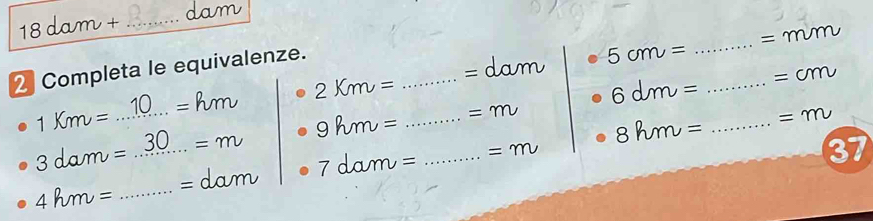 18 dam + ......... dam
2 Completa le equivalenze.
• 1 Km = ...10... = hm
• 3 dam = ...30... = m
• 4 hm = ......... = dam
• 2 Km = ......... = dam
• 9 hm = ......... = m
• 7 dam = ......... = m
• 5 cm = ......... = mm
• 6 dm = ......... = cm
• 8 hm = ......... = m
37